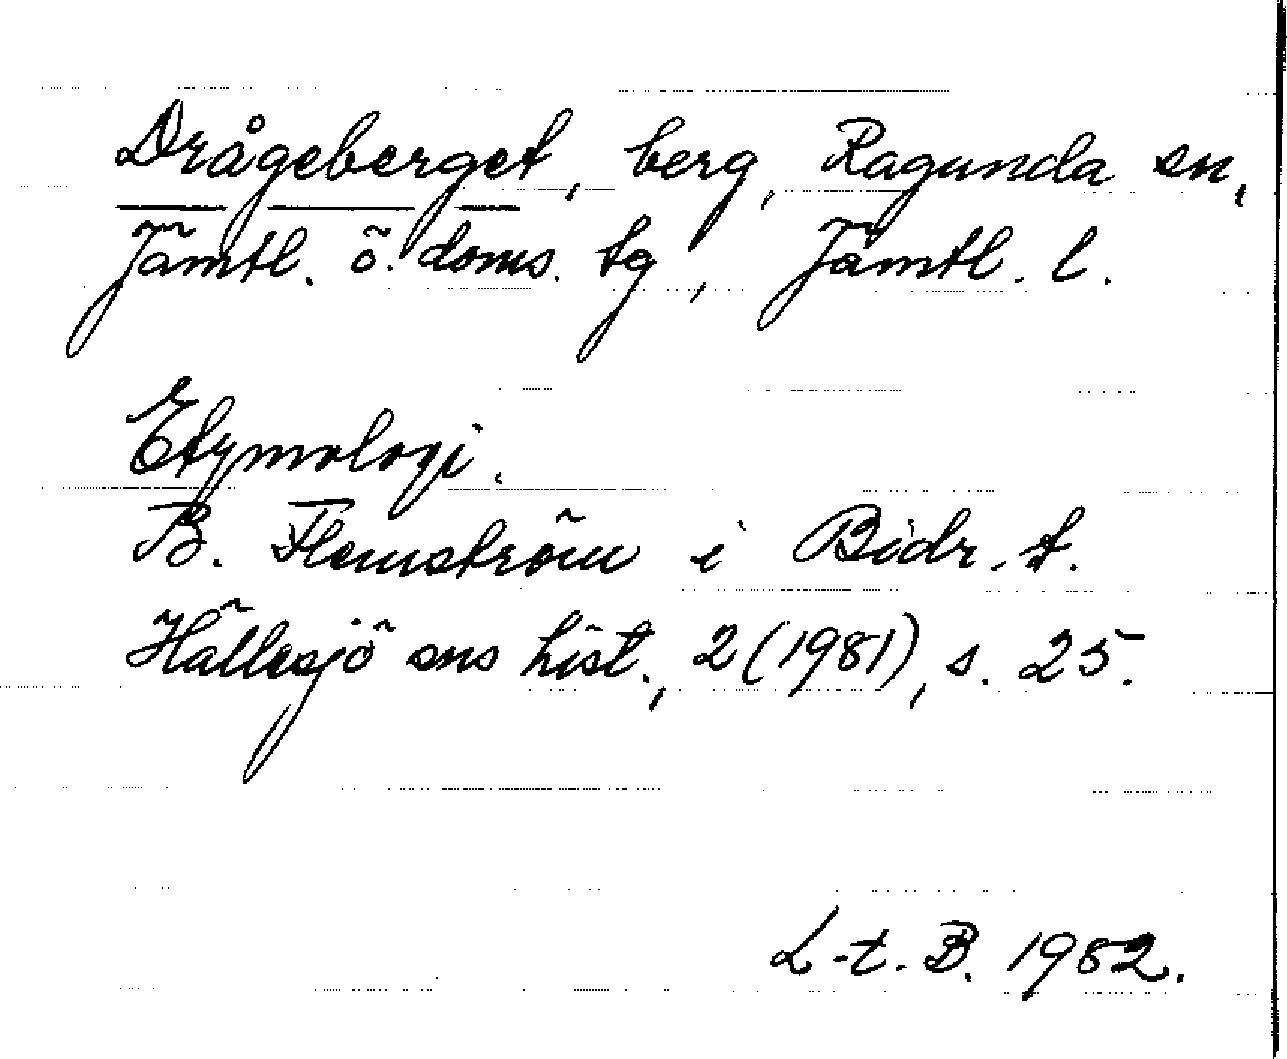 Drågeberget, berg, Ragunda sn,
Jämtl. ö. doms. tg, Jämtl. l.
Etymologi.
B. Flemström i Bidr. t.
Hällesjö sns hist., 2 (1981), s. 25.
L-t. B. 1982.